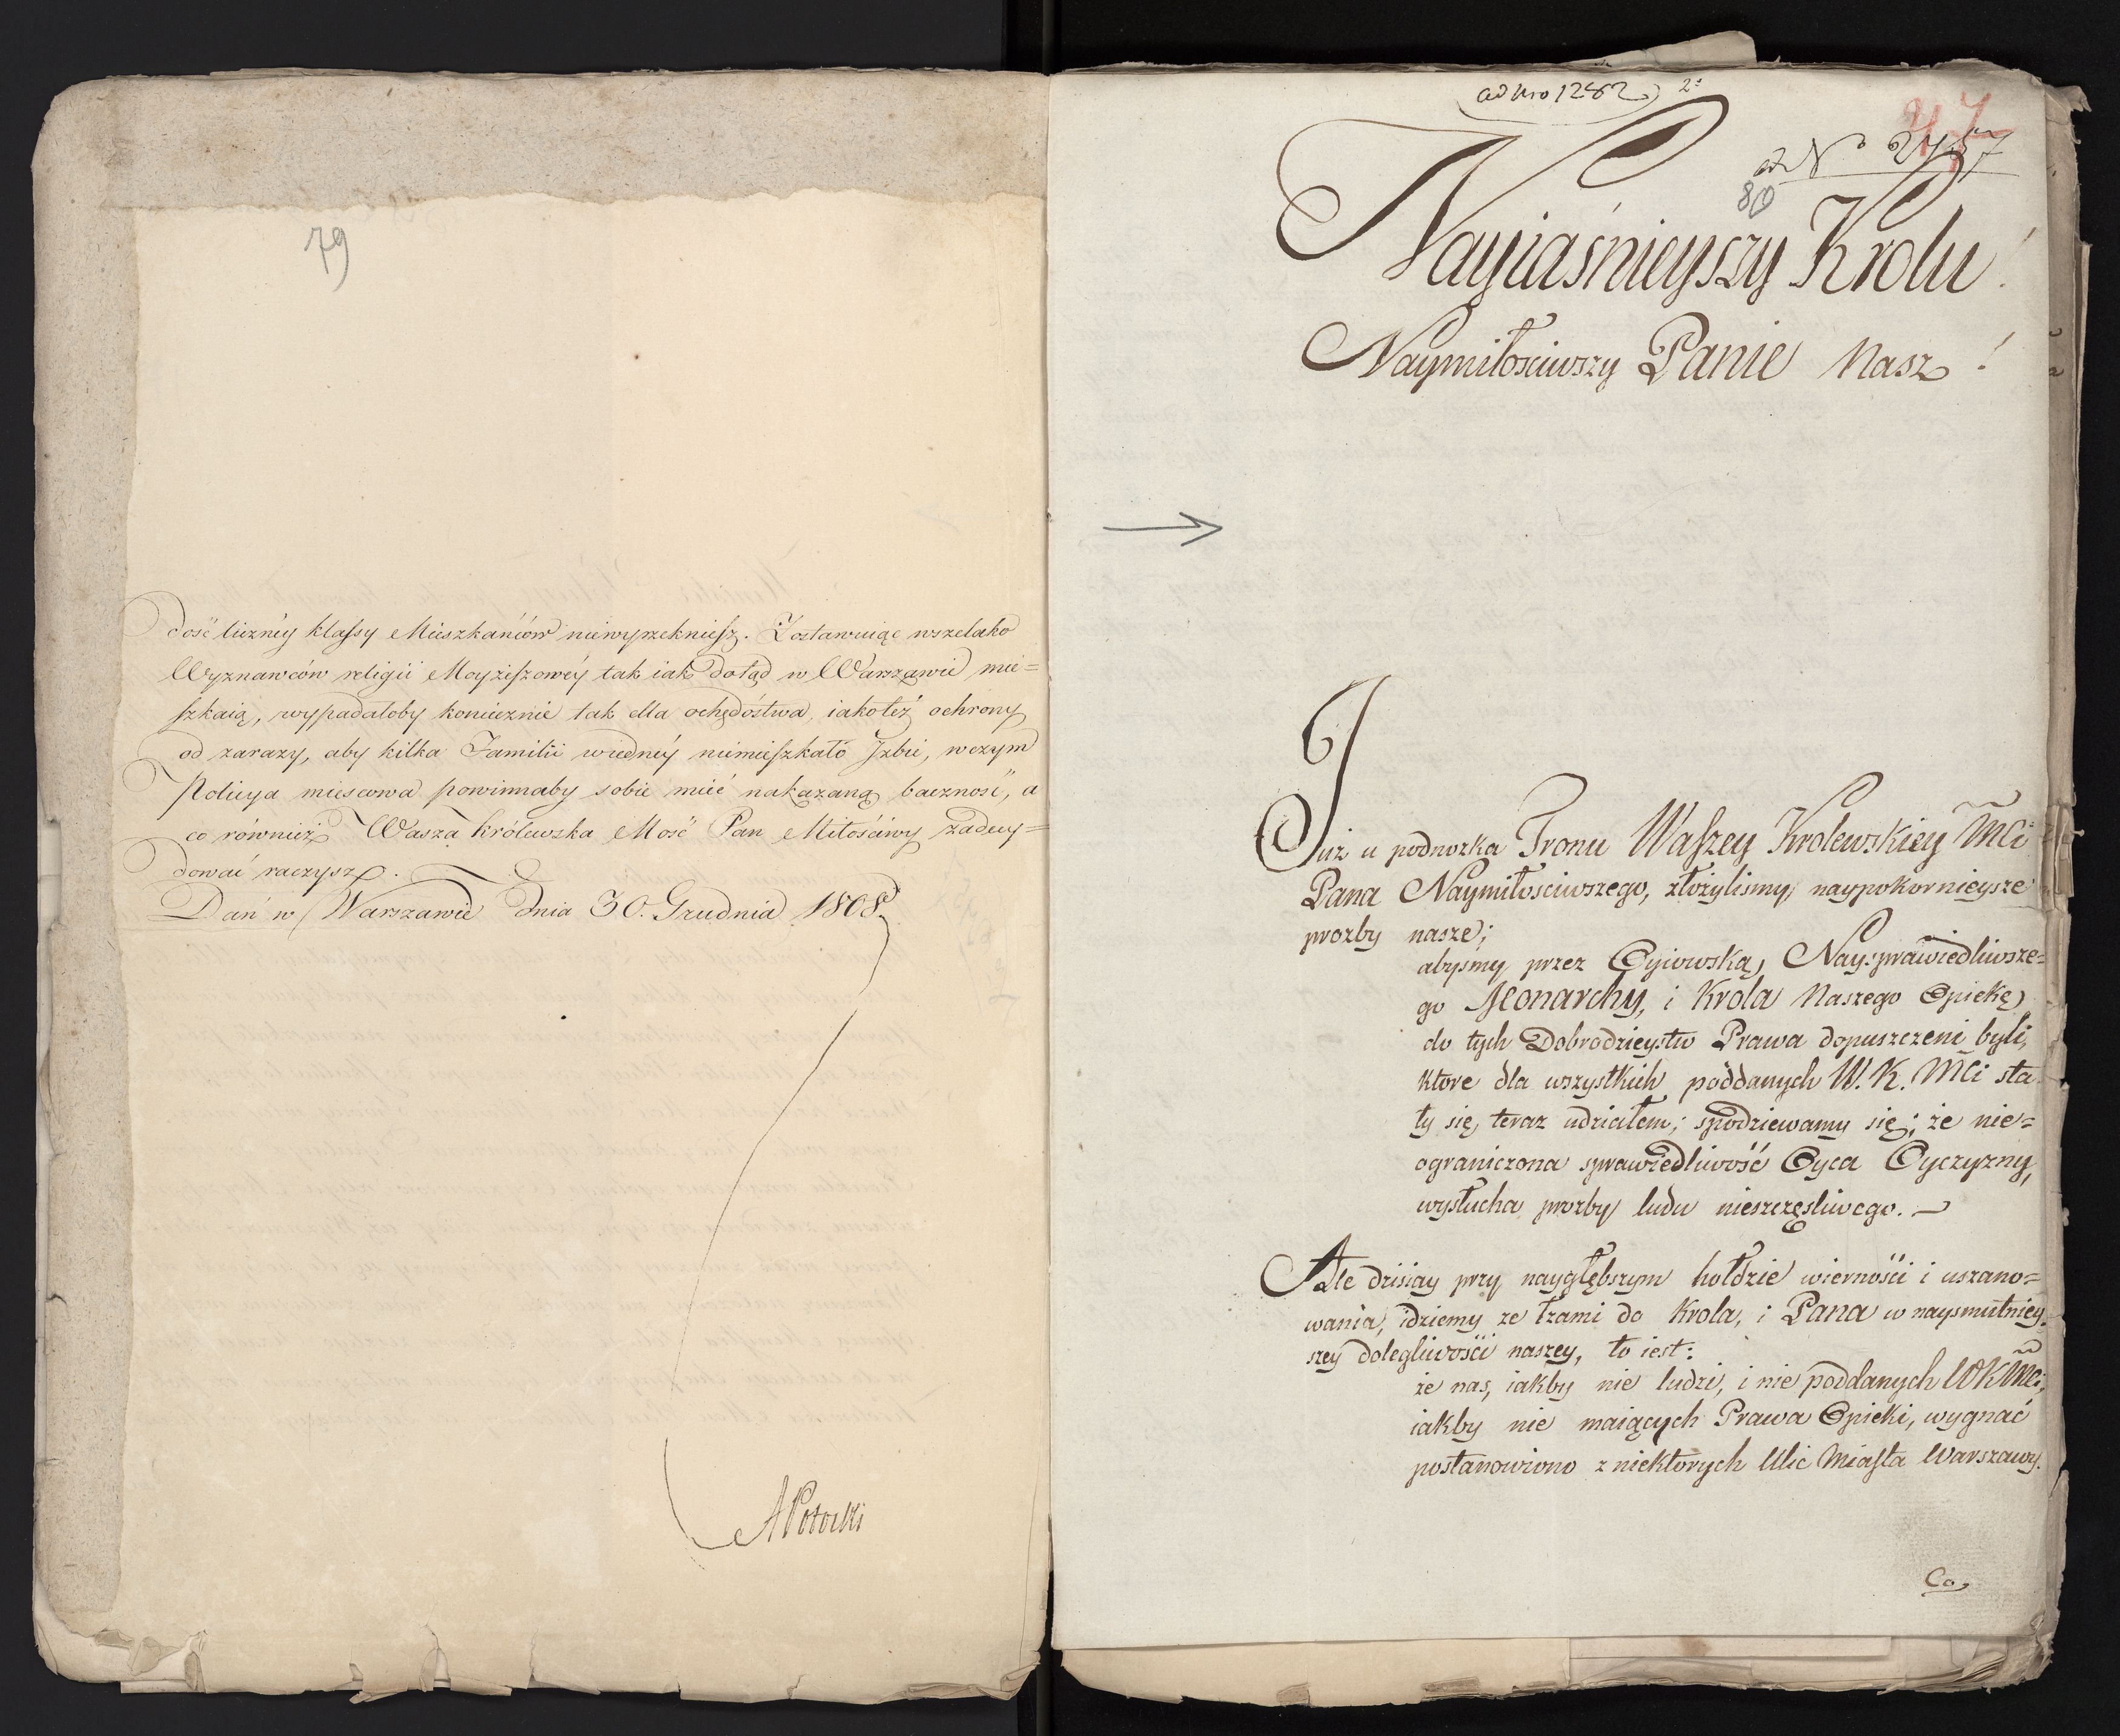 79
dość liczney klassy Mieszkańców niewyrzekniesz. Zostawuiąc wszelako
Wyznawców religii Moyżiszowéy tak iak dotąd w Warszawie mie=
szkaią, wypadałoby koniecznie tak dla ochędóstwa, iakoteż ochrony
od zarazy, aby kilka Familii wiednéy niemieszkało Jzbie, wczym
Policya miescowa powinnaby sobie mieć nakazaną baczność, a
co również Wasza Królewska Mość Pan Miłościwy zadecy=
dować raczysz.
Dań w Warszawie dnia 30. Grudnia 1808.
APotocki
(ad Nro 1282) 2:
47
ad No 2457
80
Nayiaśnieyszy Krolu!
Naymiłosciwszy Panie Nasz!
Już u podnozka Tronu Waszey Krolewskiey Mci
Pana Naymiłosciwszego, złożylismy naypokornieysze
prozby nasze;
abysmy przez Oyiowską, Nayspráwiedliwsze=
go Monarchy, i Krola Naszego Opiekę
do tych Dobrodzieystw Prawa dopuszczeni byli,
ktore dla wszystkich poddanych W. K. Mci sta
ły się teraz udziałem; spodziewamy się; że nie=
ograniczona sprawiedliwość Oyca Oyczyzny,
wysłucha prozby ludu nieszczęsliwego. —
Ale dzisiay przy naygłębszym hołdzie wierności i uszano=
wania, idziemy ze łzami do Krola, i Pana w naysmutniey
szey dolegliwości naszey, to iest:
że nas, iakby nie ludzi, i nie poddanych WKMci,
iakby nie maiących Prawa Opieki, wygnać
postanowiono z niektorych Ulic Miasta Warszawy.
Co,